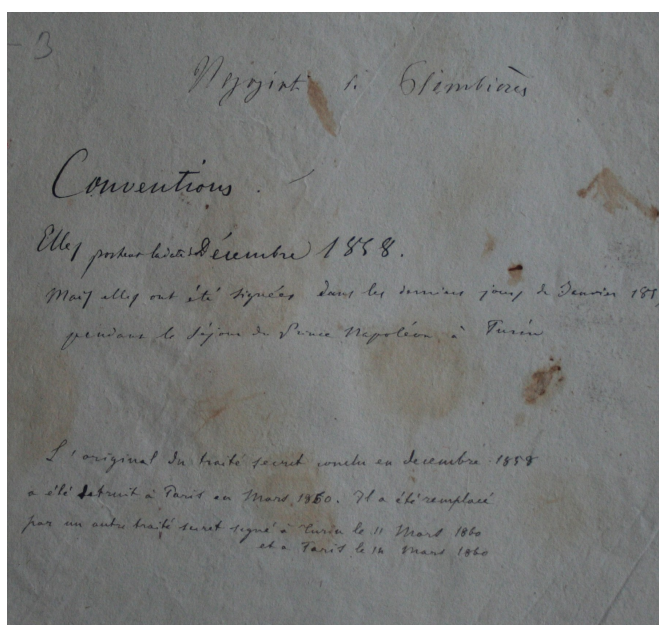 3
de Plombières
Conventions.
Elles portent la date Décembre 1858.
Mais elles ont été signées dans les derniers jours de Janvier 185
pendant le séjour du Prince Napoléon à Turin
L'original du traité secret conclu en decembre 1858
a été detruit à Paris en Mars 1860. Il a été remplacé
par un autre traité secret signé à Turin le 11 Mars 1860
et a Paris le 14 Mars 1860